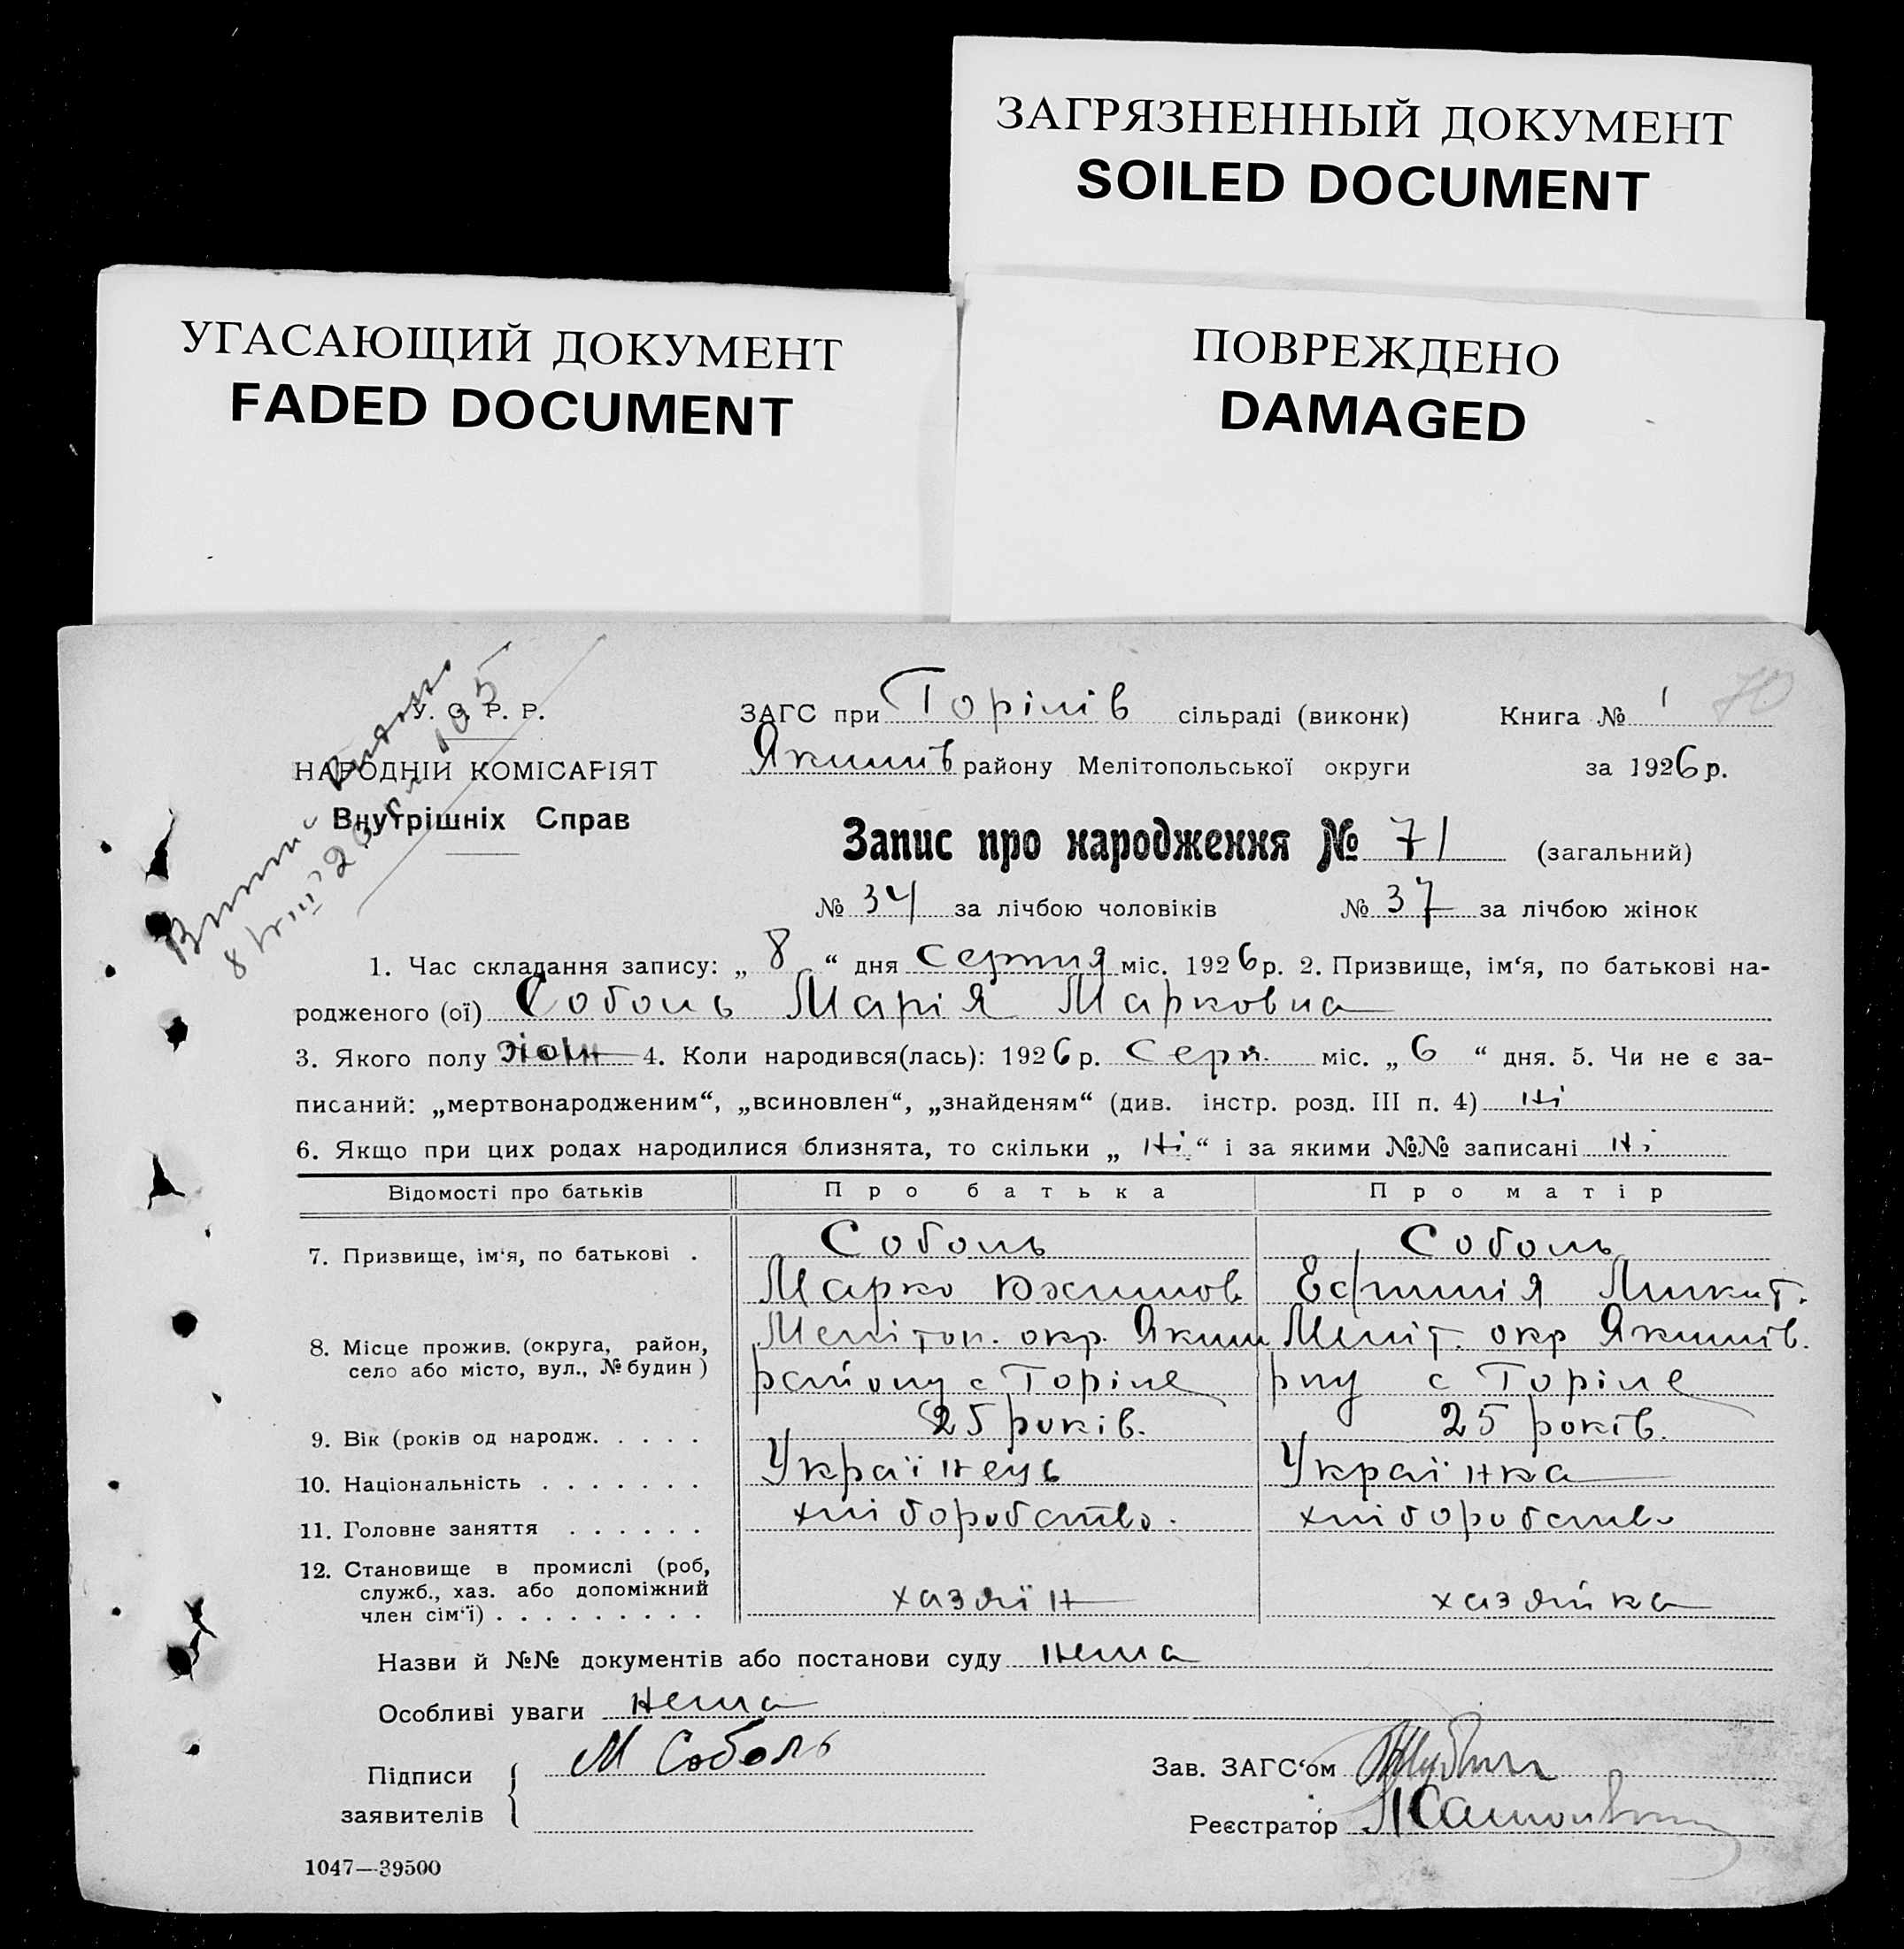 ЗАГРЯЗНЕННЫЙ ДОКУМЕНТ
SOILED DOCUMENT
УГАСАЮЩИЙ ДОКУМЕНТ
FADED DOCUMENT
ПОВРЕЖДЕНО
DAMAGED
У. С. Р. Р.
НАРОДНІЙ КОМІСАРІЯТ
Внутрішніх Справ
ЗАГС при Горілів сільраді (виконк) Книга № 1 70
Якимів району Мелітопольської округи за 1926 р.
Запис про народження № 71 (загальний)
№ 34 за лічбою чоловіків № 37 за лічбою жінок
1. Час складання запису: „ 8 “ дня серпня міс. 1926 р. 2. Призвище, ім‘я, по батькові на-
родженого (ої) Соболь Марія Марковна
3. Якого полу жіон 4. Коли народився(лась): 1926 р. серп. міс. „ 6 “ дня. 5. Чи не є за-
писаний: „мертвонародженим“, „всиновлен“, „знайденям“ (див. інстр. розд. III п. 4) ні
6. Якщо при цих родах народилися близнята, то скільки „ ні “ і за якими №№ записані ні
Відомості про батьків Про батька Про матір
7. Призвище, ім‘я, по батькові . Соболь Соболь
Марко Юхимов. Ефимія Микит.
8. Місце прожив. (округа, район, село або місто, вул., № будин) Мелітоп. окр. Яким Меліт. окр Якимів.
району с Горіле рну с Горіле
9. Вік (років од народж. . . . . 25 років. 25 років.
10. Національність . . . . . . . Українець Українка
11. Головне заняття . . . . . . хліборобство. хліборобство
12. Становище в промислі (роб,
служб., хаз. або допоміжний
член сім‘ї) . . . . . . . . . хазяїн хазяйка
Назви й №№ документів або постанови суду нема
Особливі уваги нема
Підписи М Соболь Зав. ЗАГС‘ом
заявителів Реєстратор
1047—39500